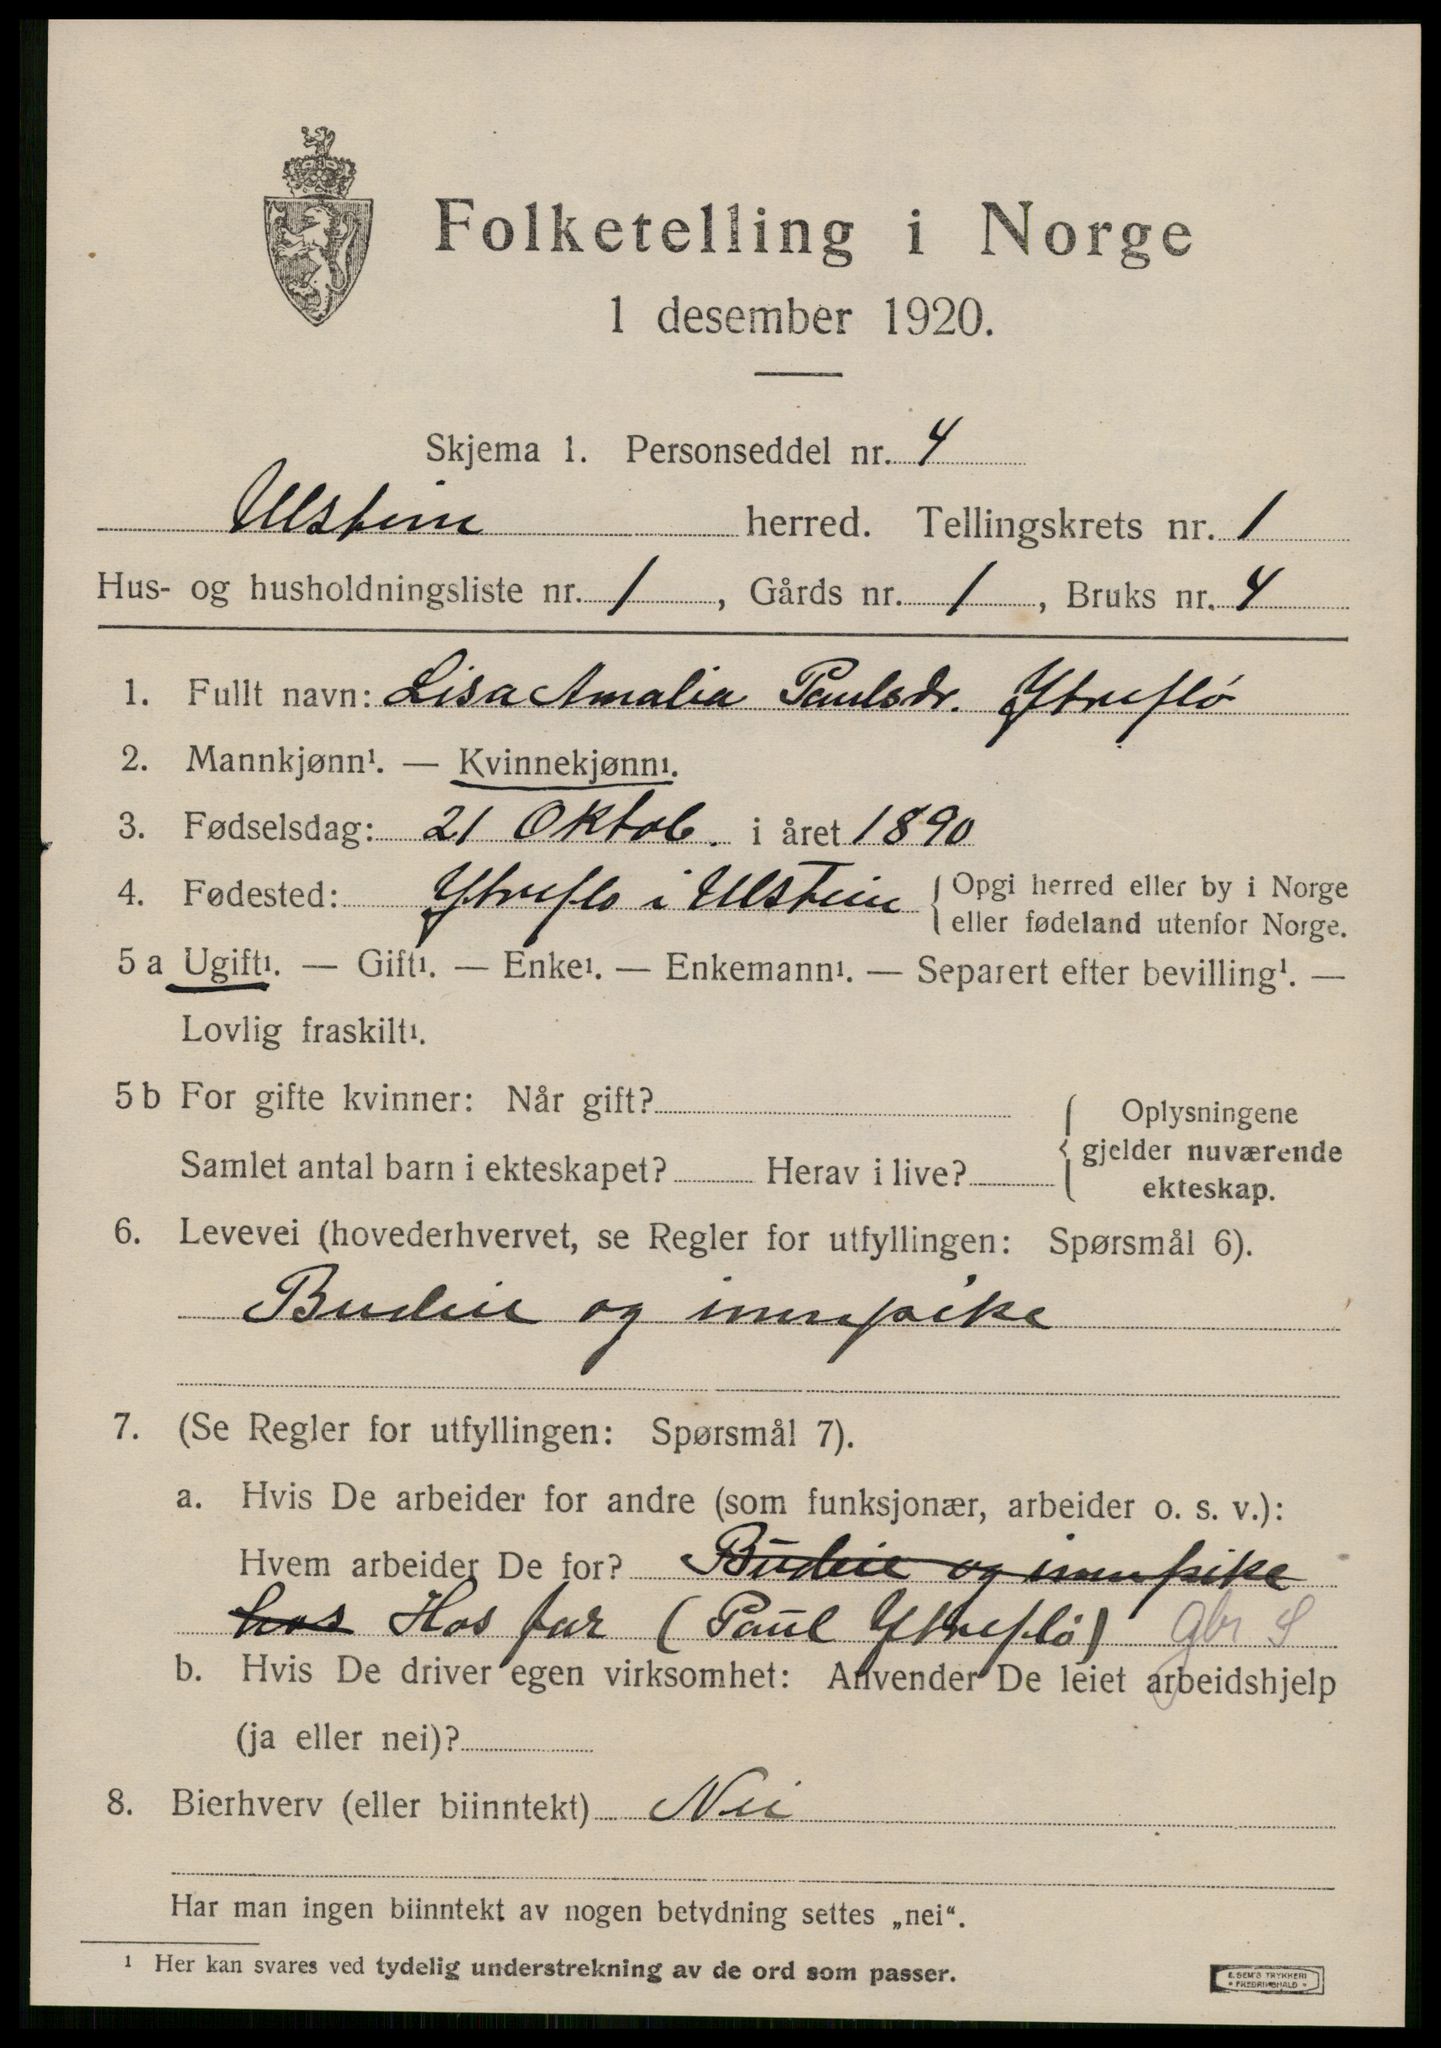 Folketelling i Norge
1 desember 1920.
Skjema 1. Personseddel nr. 4
Ulstein herred. Tellingskrets nr. 1
Hus- og husholdningsliste nr. 1, Gårds nr. 1, Bruks nr. 4
1. Fullt navn: Lisa Amalia Paulsdr. Ytreflø
2. Mannkjønn¹. — Kvinnekjønn¹.
3. Fødselsdag: 21 Oktob. i året 1890
4. Fødested: Ytreflo i Ulstein { Opgi herred eller by i Norge
eller fødeland utenfor Norge.
5 a Ugift¹. — Gift¹. — Enke¹. — Enkemann¹. — Separert efter bevilling¹. —
Lovlig fraskilt¹.
5 b For gifte kvinner: Når gift?
Samlet antal barn i ekteskapet? Herav i live?
{ Oplysningene
gjelder nuværende
ekteskap.
6. Levevei (hovederhvervet, se Regler for utfyllingen: Spørsmål 6).
Budeie og innepike
7. (Se Regler for utfyllingen: Spørsmål 7).
a. Hvis De arbeider for andre (som funksjonær, arbeider o. s. v.):
Hvem arbeider De for? Budeie og innepike
hos Hos far (Paul Ytreflø) gbr S
b. Hvis De driver egen virksomhet: Anvender De leiet arbeidshjelp
(ja eller nei)?
8. Bierhverv (eller biinntekt) Nei
Har man ingen biinntekt av nogen betydning settes „nei“.
¹ Her kan svares ved tydelig understrekning av de ord som passer.
E. SEM'S TRYKKERI
* FREDRIKSHALD *